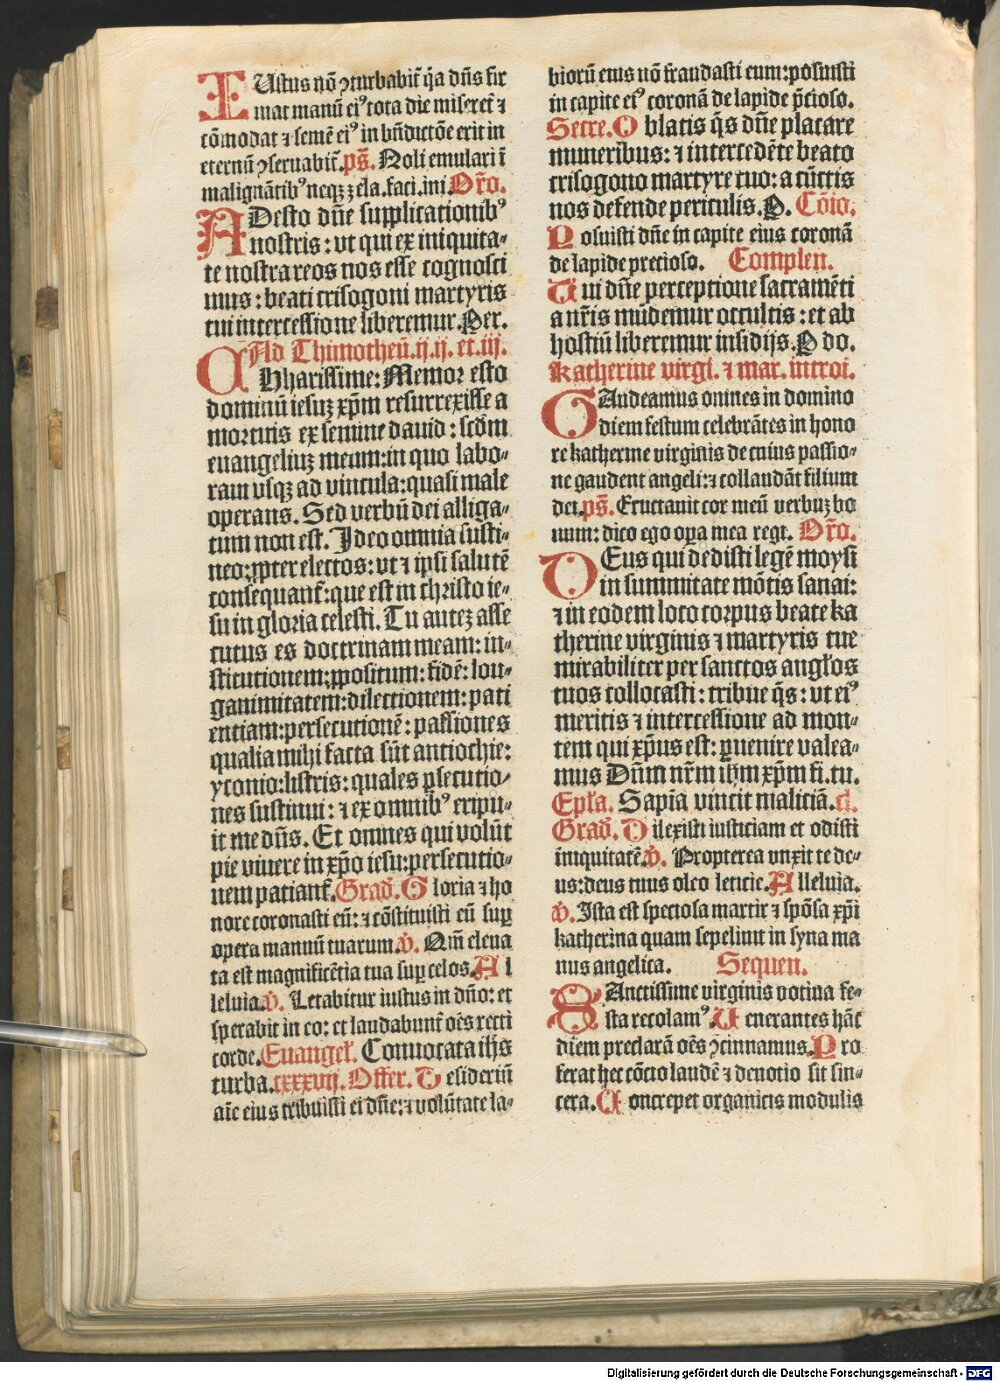 IUstus nō ꝯturbabit᷑ q̄a dn̄s fir
mat manū eiꝰ tota die miseret᷑ ⁊
cōmodat ⁊ semē eiꝰ in bn̄dictōe erit in
eternū ꝯseruabit᷑. ps̄. Noli emulari ī
malignātibꝰ neqꝫ ꝫela. faci. ini. Or̄o.
ADesto dn̄e supplicationibꝰ
nostris: vt qui ex iniquita⸗
te nostra reos nos esse cognosci
mus: beati crisogoni martyris
tui intercessione liberemur. Per.
Ad Thimotheū. ij. ij. et. iij.
CHharissime: Memor esto
dominū iesuꝫ xp̄m resurrexisse a
mortuis ex semine dauid: scd̄m
euangeliuꝫ meum: in quo labo⸗
ram vsqꝫ ad vincula: quasi male
operans. Sed verbū dei alliga⸗
tum non est. Ideo omnia susti⸗
neo: ꝓpter electos: vt ⁊ ipsi salutē
consequant᷑: que est in christo ie⸗
su in gloria celesti. Tu auteꝫ asse
cutus es doctrinam meam: in⸗
stitutionem: ꝓpositum: fidē: lon⸗
ganimitatem: dilectionem: pati
entiam: persecutionē: passiones
qualia mihi facta sūt antiochie:
yconio: listris: quales ꝑsecutio⸗
nes sustinui: ⁊ ex omnibꝰ eripu⸗
it me dn̄s. Et omnes qui volūt
pie viuere in xp̄o iesu: persecutio⸗
nem patiant᷑. Grad̄. Gloria ⁊ ho
nore coronasti eū: ⁊ cōstituisti eū suꝑ
opera manuū tuarum. ℣. Qm̄ eleua
ta est magnificētia tua suꝑ celos. Al
leluia. ℣. Letabitur iustus in dn̄o: et
sperabit in eo: et laudabunt᷑ oēs recti
corde. Euangel̄. Conuocata ih̄s
turba. cxxxvij. Offer. Desideriū
aīe eius tribuisti ei dn̄e: ⁊ volūtate la⸗
biorū eius nō fraudasti eum: posuisti
in capite eiꝰ coronā de lapide p̄cioso.
Secre. Oblatis q̄s dn̄e placare
muneribus: ⁊ intercedēte beato
crisogono martyre tuo: a cūctis
nos defende periculis. P. Cōio.
Posuisti dn̄e in capite eius coronā
de lapide precioso. Complen.
Tui dn̄e perceptione sacramēti
a nr̄is mūdemur occultis: et ab
hostiū liberemur insidijs. P do.
Katherine virgi. ⁊ mar. introi.
GAudeamus omnes in domino
diem festum celebrātes in hono
re katherine virginis de cuius passio⸗
ne gaudent angeli: ⁊ collaudāt filium
dei. ps̄. Eructauit cor meū verbuꝫ bo
num: dico ego oꝑa mea regi. Or̄o.
DEus qui dedisti legē moysi
in summitate mōtis sanai:
⁊ in eodem loco corpus beate ka
therine virginis ⁊ martyris tue
mirabiliter per sanctos angl̄os
tuos collocasti: tribue q̄s: vt eiꝰ
meritis ⁊ intercessione ad mon⸗
tem qui xp̄us est: ꝑuenire valea⸗
mus Dn̄m nr̄m ih̄m xp̄m fi. tu.
Epl̄a. Sapīa vincit maliciā. cl.
Grad̄. Dilexisti iusticiam et odisti
iniquitatē. ℣. Propterea vnxit te de⸗
us: deus tuus oleo leticie. Alleluia.
℣. Ista est speciosa martir ⁊ spōsa xp̄i
katherina quam sepeliuit in syna ma
nus angelica. Sequen.
SAnctissime virginis votiua fe⸗
sta recolamꝰ. Venerantes hāc
diem preclarā oēs ꝯcinnamus. Pro
ferat hec cōcio laudē ⁊ deuotio sit sin⸗
cera. Concrepet organicis modulis
Digitalisierung gefördert durch die Deutsche Forschungsgemeinschaft - DFG